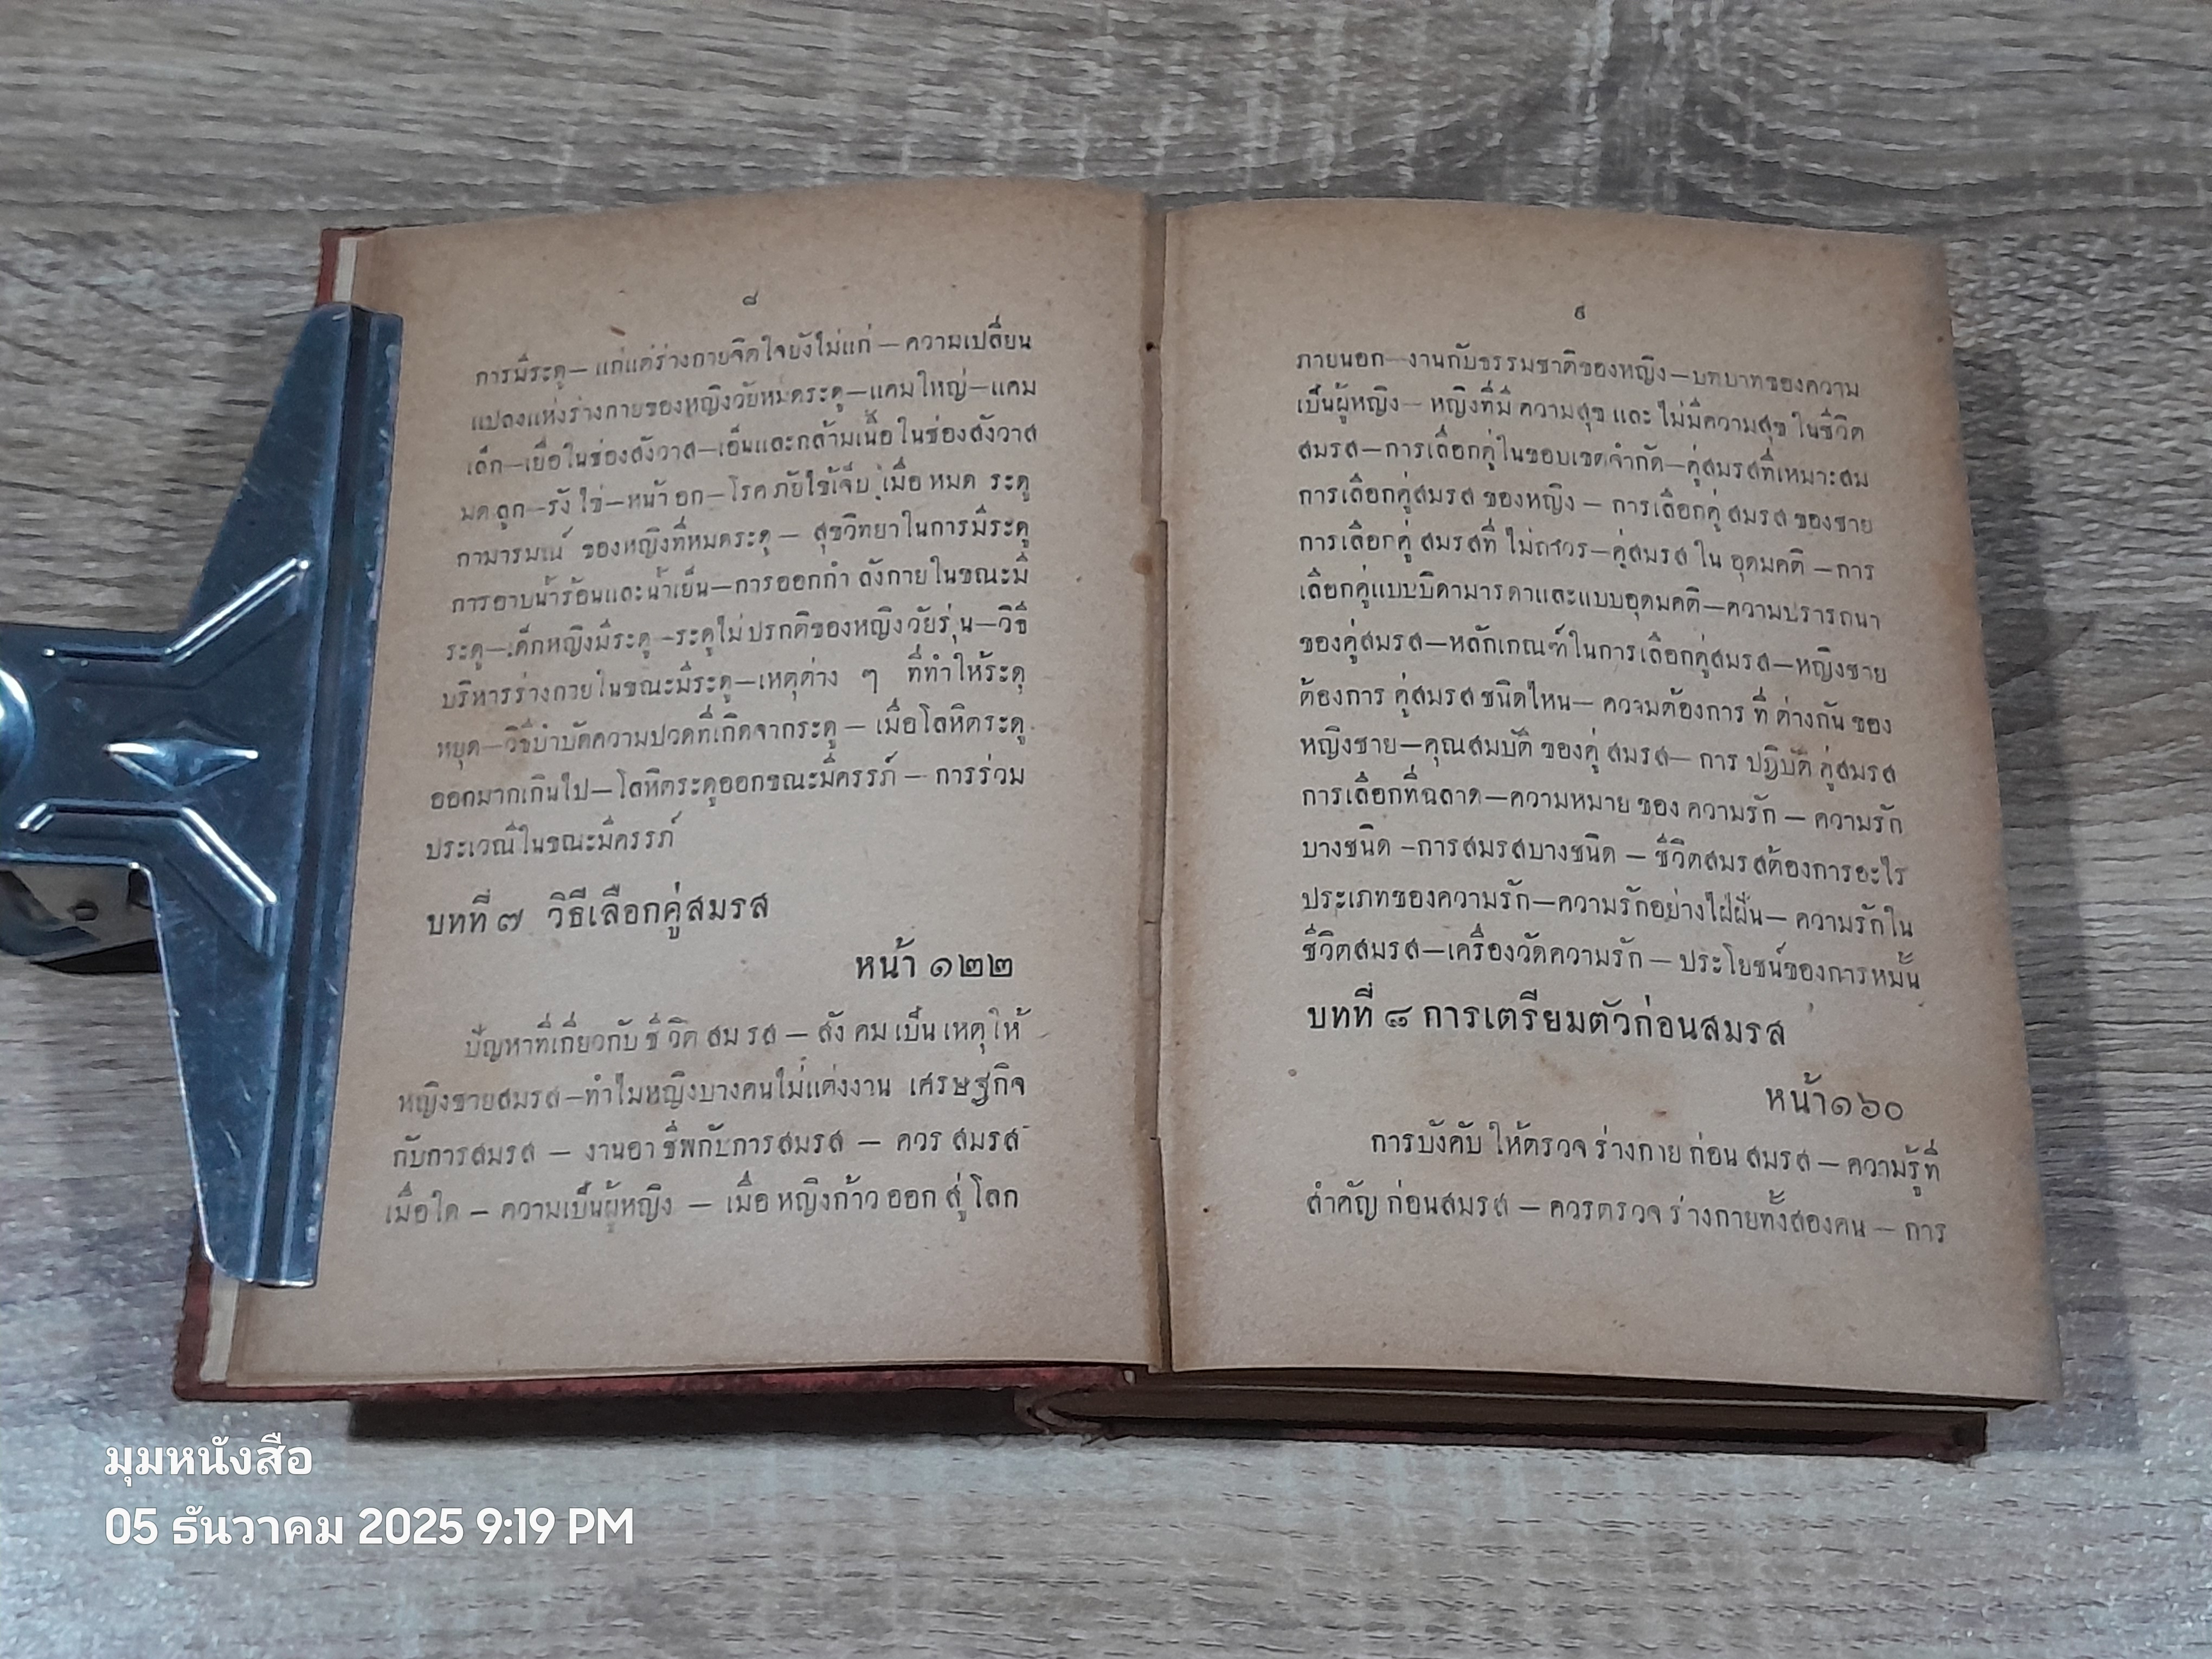 ๘
การมีระดู—แก่แต่ร่างกายจิตใจยังไม่แก่—ความเปลี่ยน
แปลงแห่งร่างกายของหญิงวัยหมดระดู—แคมใหญ่—แคม
เล็ก—เยื่อในช่องสังวาส—เอ็นและกล้ามเนื้อในช่องสังวาส
มดลูก—รังไข่—หน้าอก—โรคภัยไข้เจ็บเมื่อหมดระดู
กามารมณ์ของหญิงที่หมดระดู—สุขวิทยาในการมีระดู
การอาบน้ำร้อนและน้ำเย็น—การออกกำลังกายในขณะมี
ระดู—เด็กหญิงมีระดู—ระดูไม่ปรกติของหญิงวัยรุ่น—วิธี
บริหารร่างกายในขณะมีระดู—เหตุต่าง ๆ ที่ทำให้ระดู
หยุด—วิธีบำบัดความปวดที่เกิดจากระดู—เมื่อโลหิตระดู
ออกมากเกินไป—โลหิตระดูออกขณะมีครรภ์—การร่วม
ประเวณีในขณะมีครรภ์
บทที่ ๗ วิธีเลือกคู่สมรส
หน้า ๑๒๒
ปัญหาที่เกี่ยวกับชีวิตสมรส—สังคมเป็นเหตุให้
หญิงชายสมรส—ทำไมหญิงบางคนไม่แต่งงาน เศรษฐกิจ
กับการสมรส—งานอาชีพกับการสมรส—ควรสมรส
เมื่อใด—ความเป็นผู้หญิง—เมื่อหญิงก้าวออกสู่โลก
๙
ภายนอก—งานกับธรรมชาติของหญิง—บทบาทของความ
เป็นผู้หญิง—หญิงที่มีความสุขและไม่มีความสุขในชีวิต
สมรส—การเลือกคู่ในขอบเขตจำกัด—คู่สมรสที่เหมาะสม
การเลือกคู่สมรสของหญิง—การเลือกคู่สมรสของชาย
การเลือกคู่สมรสที่ไม่ถาวร—คู่สมรสในอุดมคติ—การ
เลือกคู่แบบบิดามารดาและแบบอุดมคติ—ความปรารถนา
ของคู่สมรส—หลักเกณฑ์ในการเลือกคู่สมรส—หญิงชาย
ต้องการคู่สมรสชนิดไหน—ความต้องการที่ต่างกันของ
หญิงชาย—คุณสมบัติของคู่สมรส—การปฏิบัติคู่สมรส
การเลือกที่ฉลาด—ความหมายของความรัก—ความรัก
บางชนิด—การสมรสบางชนิด—ชีวิตสมรสต้องการอะไร
ประเภทของความรัก—ความรักอย่างใฝ่ฝัน—ความรักใน
ชีวิตสมรส—เครื่องวัดความรัก—ประโยชน์ของการหมั้น
บทที่ ๘ การเตรียมตัวก่อนสมรส
หน้า๑๖๐
การบังคับให้ตรวจร่างกายก่อนสมรส—ความรู้ที่
สำคัญก่อนสมรส—ควรตรวจร่างกายทั้งสองคน—การ
มุมหนังสือ
05 ธันวาคม 2025 9:19 PM